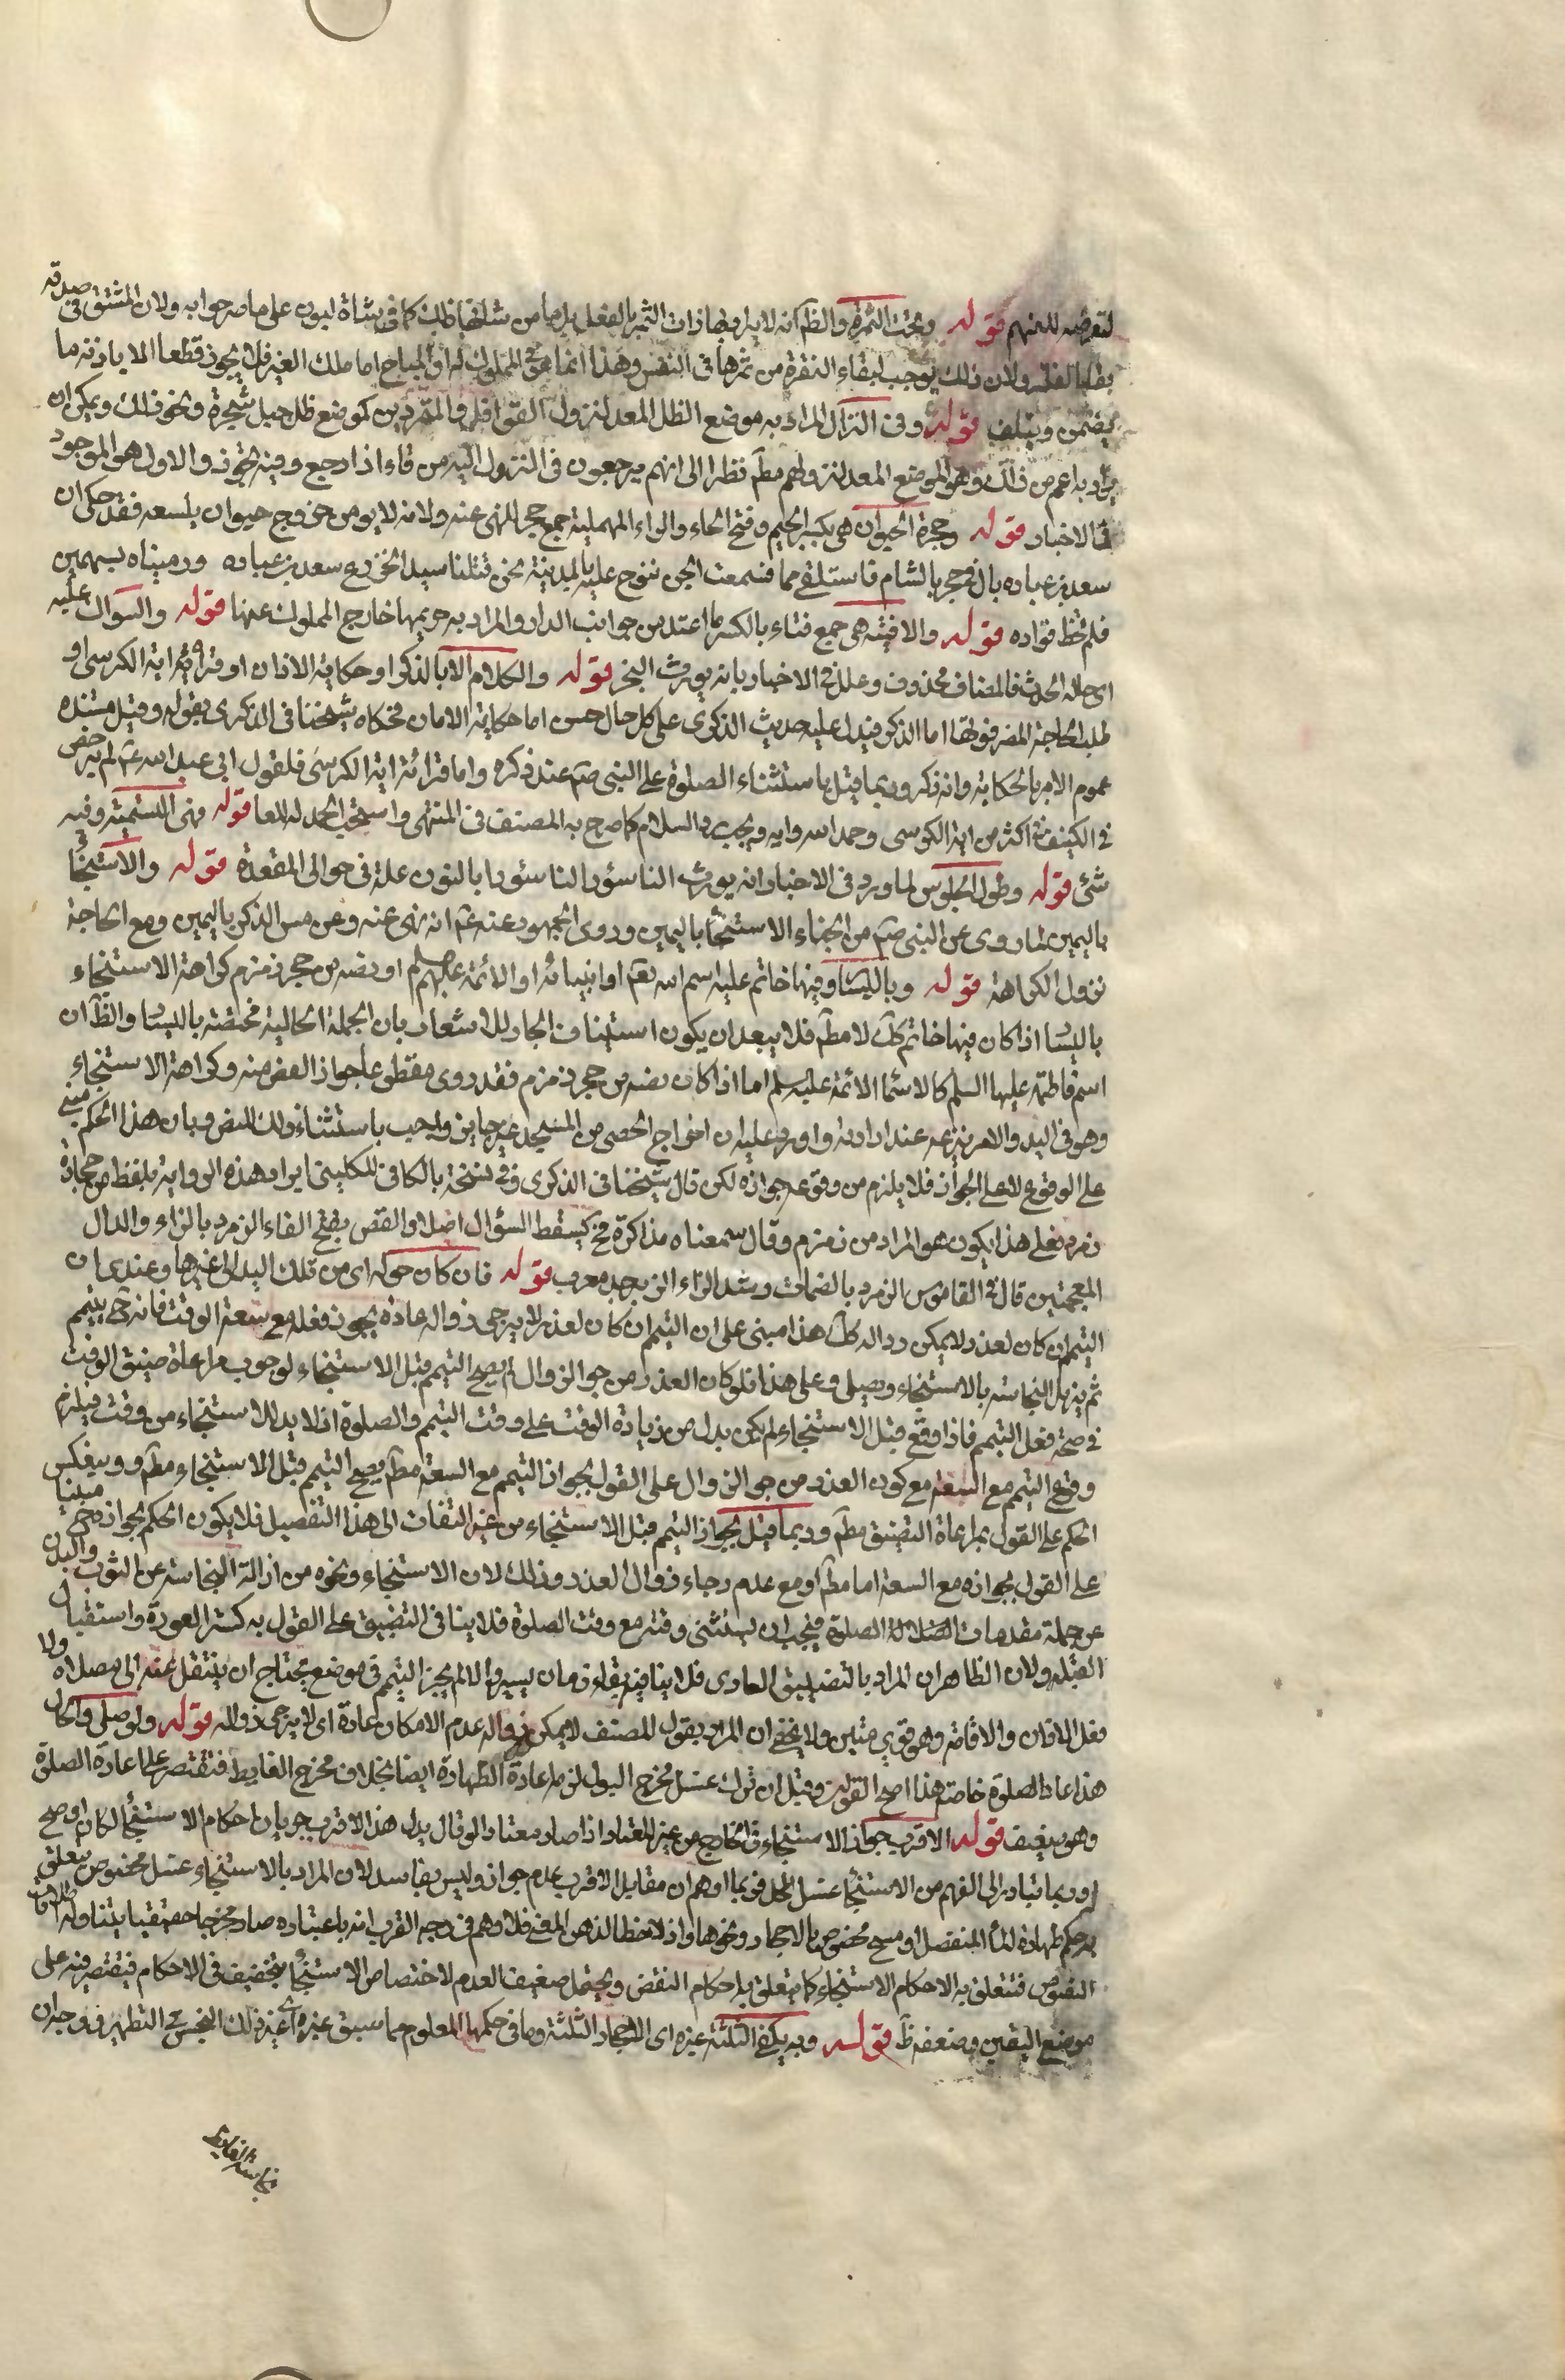 لتعرضه للعنهم قوله وتحت المثمرة والظ انه لا يراد بها ذات الثمر بالفعل بل ما من شانها ذلك كما في شاة لبون على ما صرحوا به ولان المشتق في صدقه
بقاء ولان ذلك يوجب لبقاء النفرة من ثمرها في النفس وهذا انما هو في المملوك له او المباح اما ملك الغير فلا يجوز قطعا الا باذنه ما
فيضمن ويتلف قوله وفئ النزال المراد به موضع الظل المعد لنزول القوافل والمترددين كموضع ظل جبل شجرة ونحو ذلك ويمكن ان
يراد به اعم من ذلك وهو الموضع المعد لنزولهم مط نظرا الى انهم يرجعون في النزول اليه من فاء اذا رجع وفيه تجوز والاول هو الموجود
في الاخبار قوله وجحرة الحيوان هي بكسر الجيم وفتح الحاء والراء المهملة جمع جحر للنهي عنه ولانه لا يومن خروج حيوان يلسعه فقد حكى ان
سعد بن عباده بال في جحر بالشام فاستلقى ميتا فسمعت الجن تنوح عليه بالمدينة نحن قتلنا سيد الخزرج سعد بن عباده ورميناه بسهمين
فلم نخط فؤاده قوله والافنية هي جمع فناء بالكسر ما امتد من جوانب الدار والمراد به حريمها خارج المملوك عنها قوله والسواك عليه
اي حالة الحدث فالمضاف محذوف وعلل في الاخبار بانه يورث البخر قوله والكلام الا بالذكر او حكاية الاذان او قراءة اية الكرسي او
طلب الحاجة المضر فوتها اما الذكر فيدل عليه حديث الذكرى على كل حال حسن اما حكاية الاذان فحكاه شيخنا في الذكرى بقوله وقيل مستنده
عموم الامر بالحكاية وانه ذكر وربما قيل باستثناء الصلوة على النبي صم عند ذكره واما قرائة اية الكرسي فلقول ابي عبد الله عم لم يرخص
في الكنيف في اكثر من اية الكرسي وحمد الله واية ويجب رد السلام كما صرح به المصنف في المنتهى واستحب الحمد له للعاطس قوله وفي التسمية وفيه
شئ قوله وطول الجلوس لما ورد في الاخبار انه يورث الناسور الناسور بالنون علة في حوالى المقعدة قوله والاستنجاء
باليمين لما روى عن النبي صم من الجفاء الاستنجا باليمين وروى الجمهور عنه عم انه نهى عنه وعن مس الذكر باليمين ومع الحاجة
تزول الكراهة قوله وباليسار وفيها خاتم عليه اسم الله تعم او انبيائه او الائمة عليهم السلم او فصه من حجر زمزم كراهة الاستنجاء
باليسار اذا كان فيها خاتم كك لا مط فلا يبعد ان يكون استيناف الجار للاشعار بان الجملة الحالية مختصة باليسار والظ ان
اسم فاطمة عليها السلم كالاسماء الائمة عليهم السلم اما اذا كان فصه من حجر زمزم فقد روى مقطوعا جواز الفص منه وكراهة الاستنجاء
وهو في اليد والامر بنزعه عند ارادته واورد عليه ان اخراج الحصى من المسجد غير جايز واجيب باستثناء ذلك للنص وبان هذا الحكم مبني
على الوقوع لا على الجواز فلا يلزم من وقوعه جوازه لكن قال شيخنا في الذكرى وفي نسخة بالكافي للكليني ايراد هذه الرواية بلفظ من حجارة
زمرد فعلى هذا يكون هو المراد من زمزم وقال سمعناه مذاكرة فح يسقط السؤال اصلا والفص بفتح الفاء الزمرد بالزاء والدال
المعجمتين قال في القاموس الزمرد بالضمات وشد الراء الزبرجد معرب قوله فان كان حوله اي من تلك اليد الى غيرها وعندي ان
التيمم ان كان لعذر لا يمكن زواله كك هذا مبني على ان التيمم ان كان لعذر لا يرجى زواله عادة يجوز فعله مع سعة الوقت فانه ح يتيمم
ثم يزيل النجاسة بالاستنجاء ويصلى وعلى هذا فلو كان العذر مرجو الزوال لم يصح التيمم قبل الاستنجاء لوجوب مراعاة ضيق الوقت
في صحة فعل التيمم فاذا وقع قبل الاستنجاء لم يكن بد من زيادة الوقت على وقت التيمم والصلوة اذ لا بد للاستنجاء من وقت فيلزم
وقوع التيمم مع السعة مع كون العذر مرجو الزوال على القول بجواز التيمم مع السعة مط يصح التيمم قبل الاستنجاء مط وينعكس
الحكم على القول بمراعاة التضيق مط وربما قيل بجواز التيمم قبل الاستنجاء من غير التفات الى هذا التفصيل فلا يكون الحكم بجوازه ح مبنيا
على القول بجوازه مع السعة اما مط او مع عدم رجاء زوال العذر وذلك لان الاستنجاء ونحوه من ازالة النجاسة عن الثوب والبدن
من جملة مقدمات الصلوة فيجب ان يستثنى وقته مع وقت الصلوة فلا ينافي التضييق على القول به كستر العورة واستقبال
القبلة ولان الظاهر ان المراد بالتضييق العادى فلا ينافيه بقاء زمان يسير والا لم يجز التيمم في موضع يحتاج ان ينتقل عنه الى مصلاه ولا
فعل الاذان والاقامة وهو قوي متين ولا يخفى ان المراد بقول المصنف لا يمكن زواله عدم الامكان عادة اي لا يرجى زواله قوله ولو صلى والحال
هذا اعاد الصلوة خاصة هذا اصح القولين وقيل ان ترك غسل مخرج البول لزمه اعادة الطهارة ايضا بخلاف مخرج الغايط فتقتصر على اعادة الصلوة
وهو ضعيف قوله الاقرب جواز الاستنجاء في الخارج من غير المعتاد اذا صار معتادا لو قال بدل هذا الاقرب جريان احكام الاستنجاء لكان اوضح
اذ ربما تبادر الى الفهم من الاستنجاء غسل المحل فربما اوهم ان مقابل الاقرب عدم جوازه وليس بفاسد لان المراد بالاستنجاء غسل مخصوص يتعلق
به حكم طهارة الماء المنفصل او مسح مخصوص بالاحجار ونحوها واذ لاحظ الذهن المعنى فلا وهم في وجه القرب انه باعتياده صار مخرجا حقيقيا يتناوله اطلاقات
النصوص فتتعلق به الاحكام الاستنجاء كما يتعلق به احكام النقض ويحتمل ضعيفا العدم لاختصاص الاستنجاء بتخفيف في الاحكام فيقتصر فيه على
موضع اليقين وضعفه ظ قوله وبه يكفي الثلثة غيره اي الاحجار الثلثة وما في حكمها المعلوم مما سبق غيره اي غير ذلك النجس في التطهير ووجدان